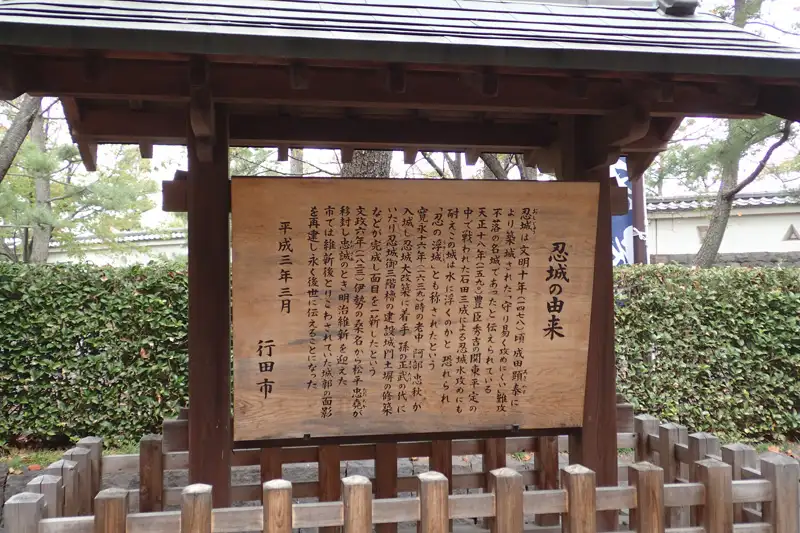 忍城の由来
忍城は文明十年(一四七八)頃、成田顕泰に
より築城された「守り易く攻めにくい難攻
不落の名城であった」と伝えられている
天正十八年(一五九〇)豊臣秀吉の関東平定の
中で戦われた石田三成による忍城水攻めにも
耐え「この城は水に浮くのか」と恐れられ
「忍の浮城」とも称されたという
寛永十六年(一六三九)時の老中 阿部忠秋が
入城し忍城大改築に着手 孫の正武の代に
いたり忍城御三階櫓の建設城門土塀の修築
などが完成し面目を一新したという
文政六年(一八二三)伊勢の桑名から松平忠堯が
移封し忠誠のとき明治維新を迎えた
市では維新後とりこわされていた城郭の面影
を再建し永く後世に伝えることになった
平成三年三月
行田市